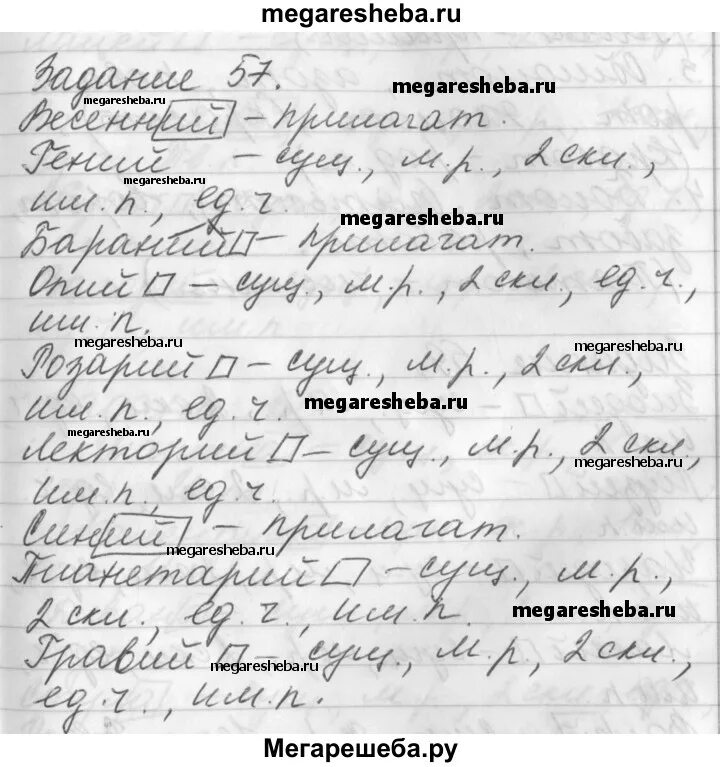 megaresheba.ru
Задание 57.
megaresheba.ru
megaresheba.ru
Весенний - прилагат.
Гений - сущ., м.р., 2 скл.,
megaresheba.ru
им.п., ед.ч.
megaresheba.ru
Бараний - прилагат.
Опий - сущ., м.р., 2 скл., ед.ч.,
им.п.
megaresheba.ru
megaresheba.ru
Розарий - сущ., м.р., 2 скл.,
им.п., ед.ч.
megaresheba.ru
megaresheba.ru
Лекторий - сущ., м.р., 2 скл.,
megaresheba.ru
им.п., ед.ч.
Синий - прилагат.
megaresheba.ru
Планетарий - сущ., м.р.,
2 скл., ед.ч., им.п.
megaresheba.ru
Гравий - сущ., м.р., 2 скл.,
megaresheba.ru
ед.ч., им.п.
Мегарешеба.ру